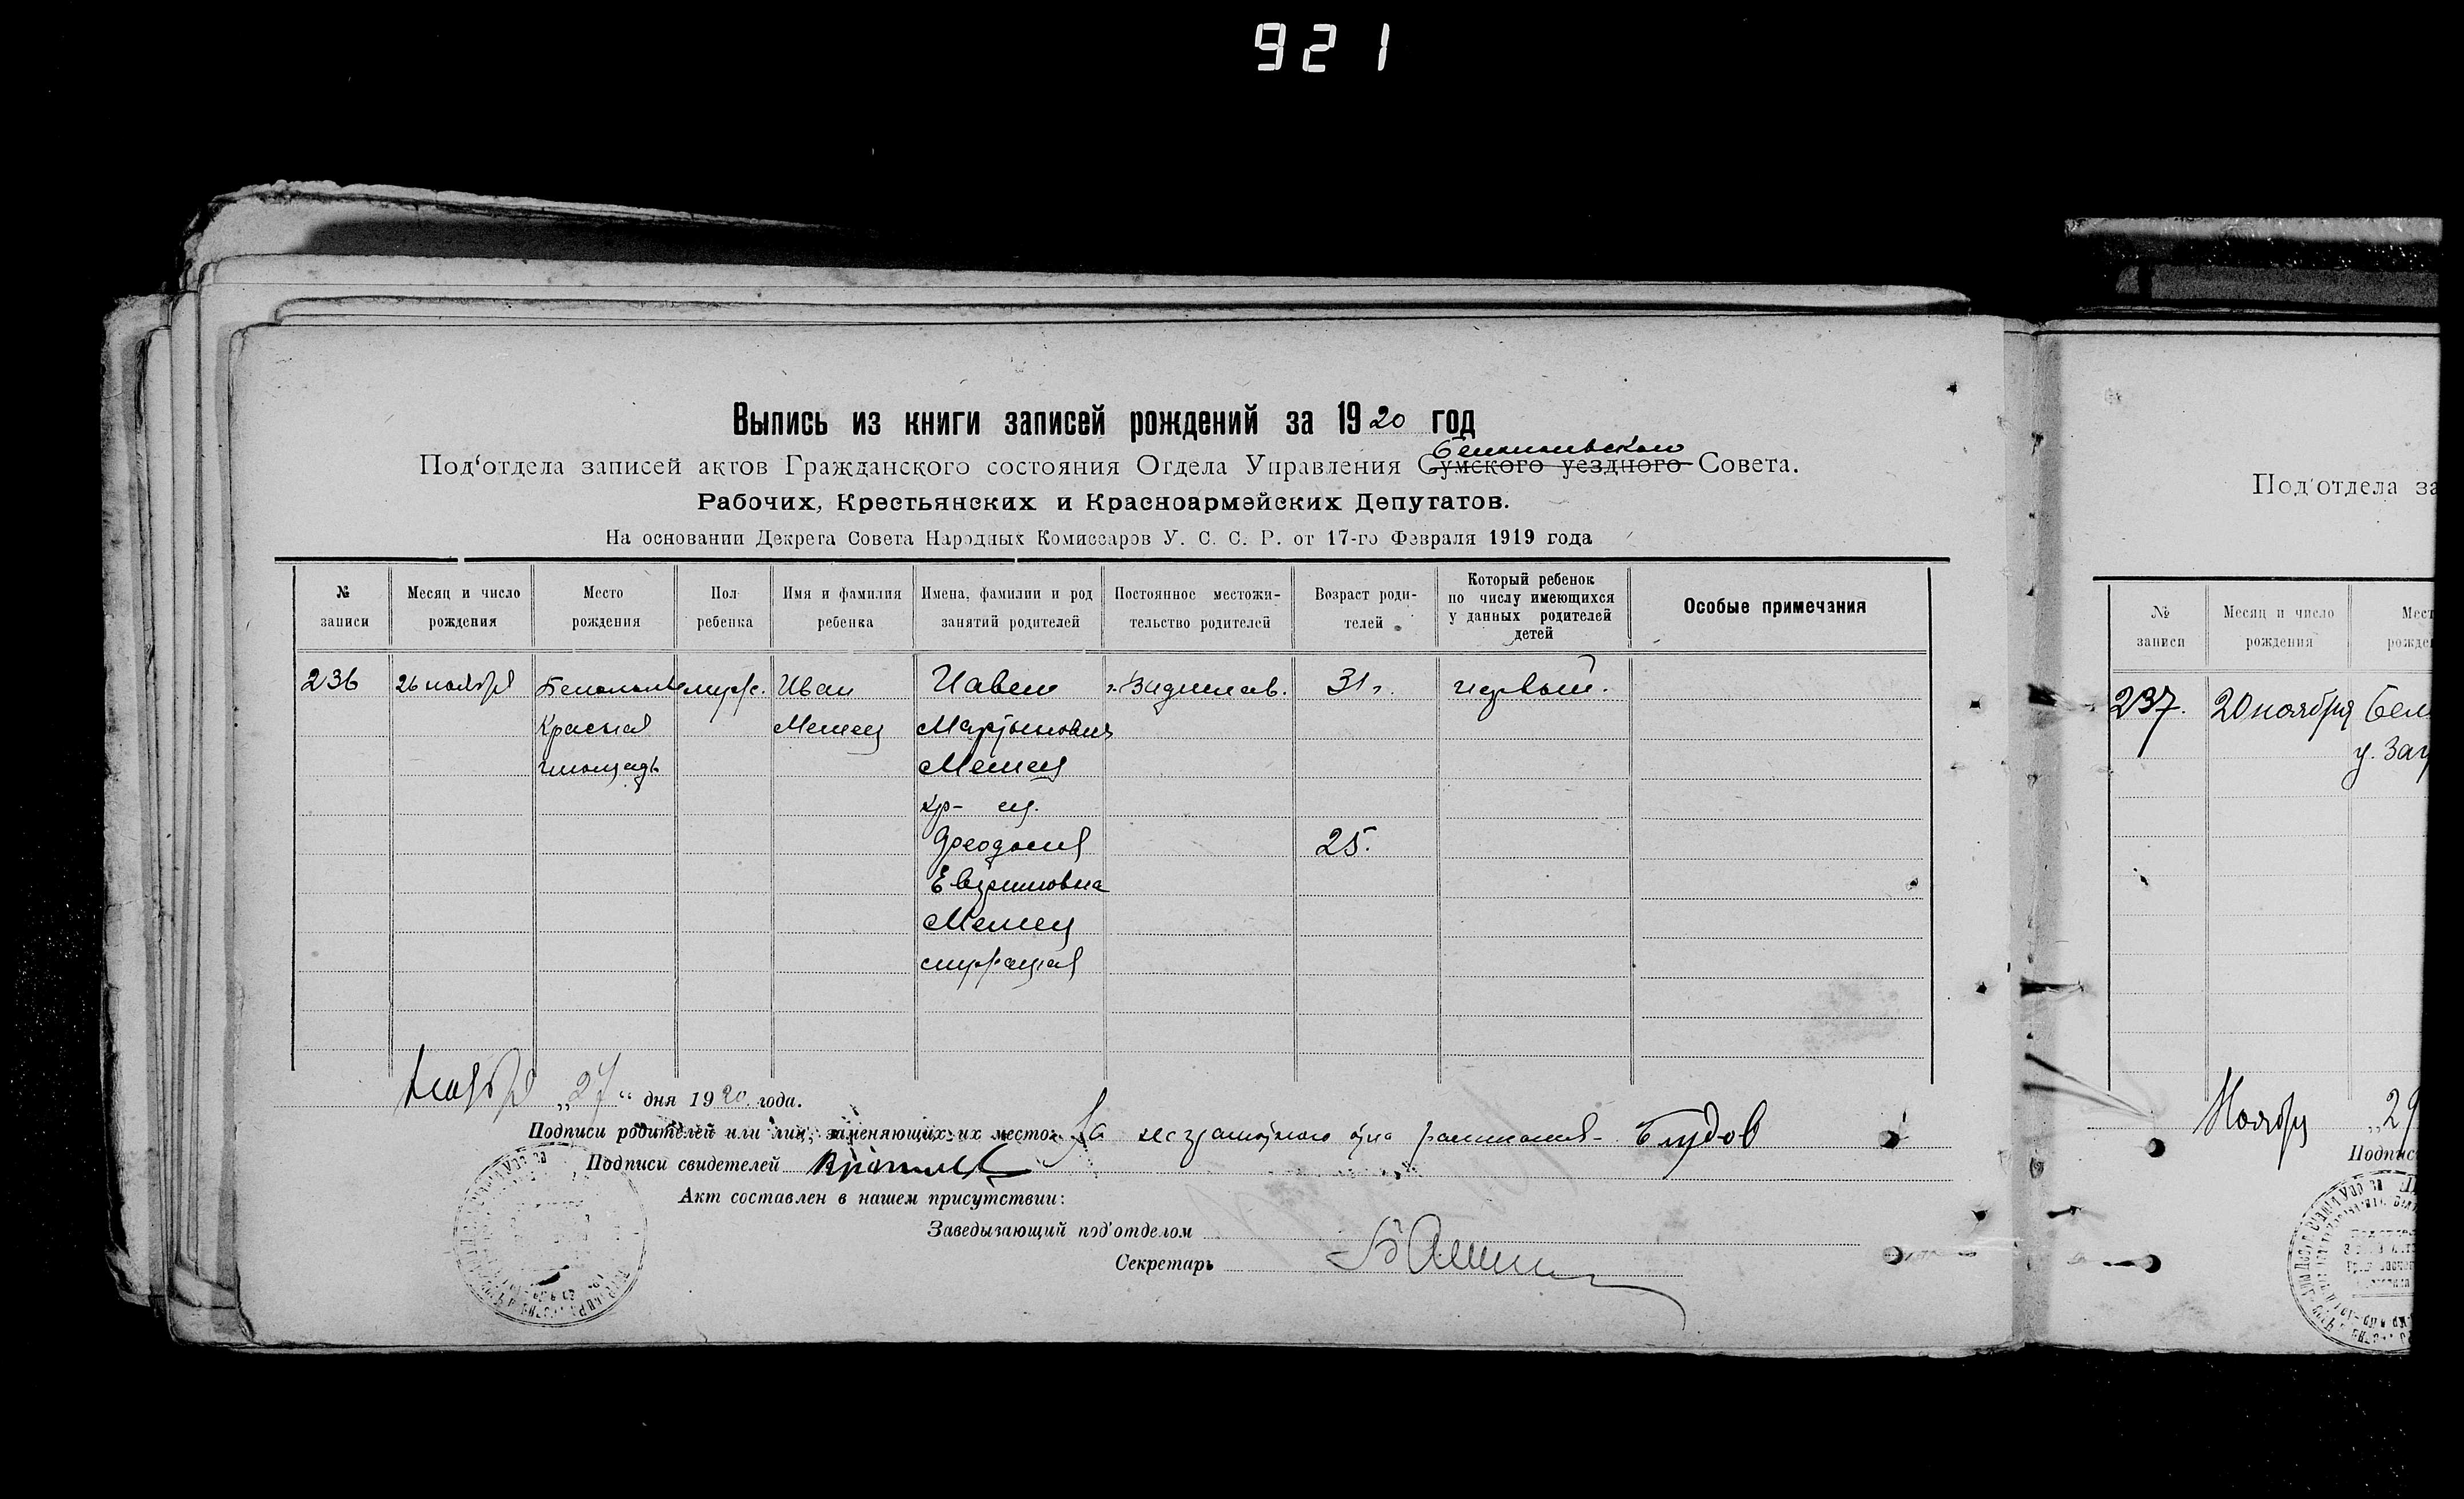 921
Выпись из книги записей рождений за 1920 год
Белопольского
Под'отдела записей актов Гражданского состояния Отдела Управления Сумского уездного Совета.
Рабочих, Крестьянских и Красноармейских Депутатов.
На основании Декрета Совета Народных Комиссаров У. С. С. Р. от 17-го Февраля 1919 года
№ записи
Месяц и число рождения
Место рождения
Пол ребенка
Имя и фамилия ребенка
Имена, фамилии и род занятий родителей
Постоянное местожительство родителей
Возраст родителей
Который ребенок по числу имеющихся у данных родителей детей
Особые примечания
236 26 ноября Белополье мужс. Иван Павел 31 г. первый.
Красная Мартынович
площадь
кр-ец.
Феодосия 25.
Ноября „27“ дня 1920 года.
Подписи родителей или лиц, заменяющих их место: За неграмотного
Подписи свидетелей
Акт составлен в нашем присутствии:
Заведывающий под'отделом
Секретарь
Под'отдела за
№ записи
Месяц и число рождения
Мест
рожде
237. 20 ноября Бел
у. Заг
Ноябр „29
Подпис